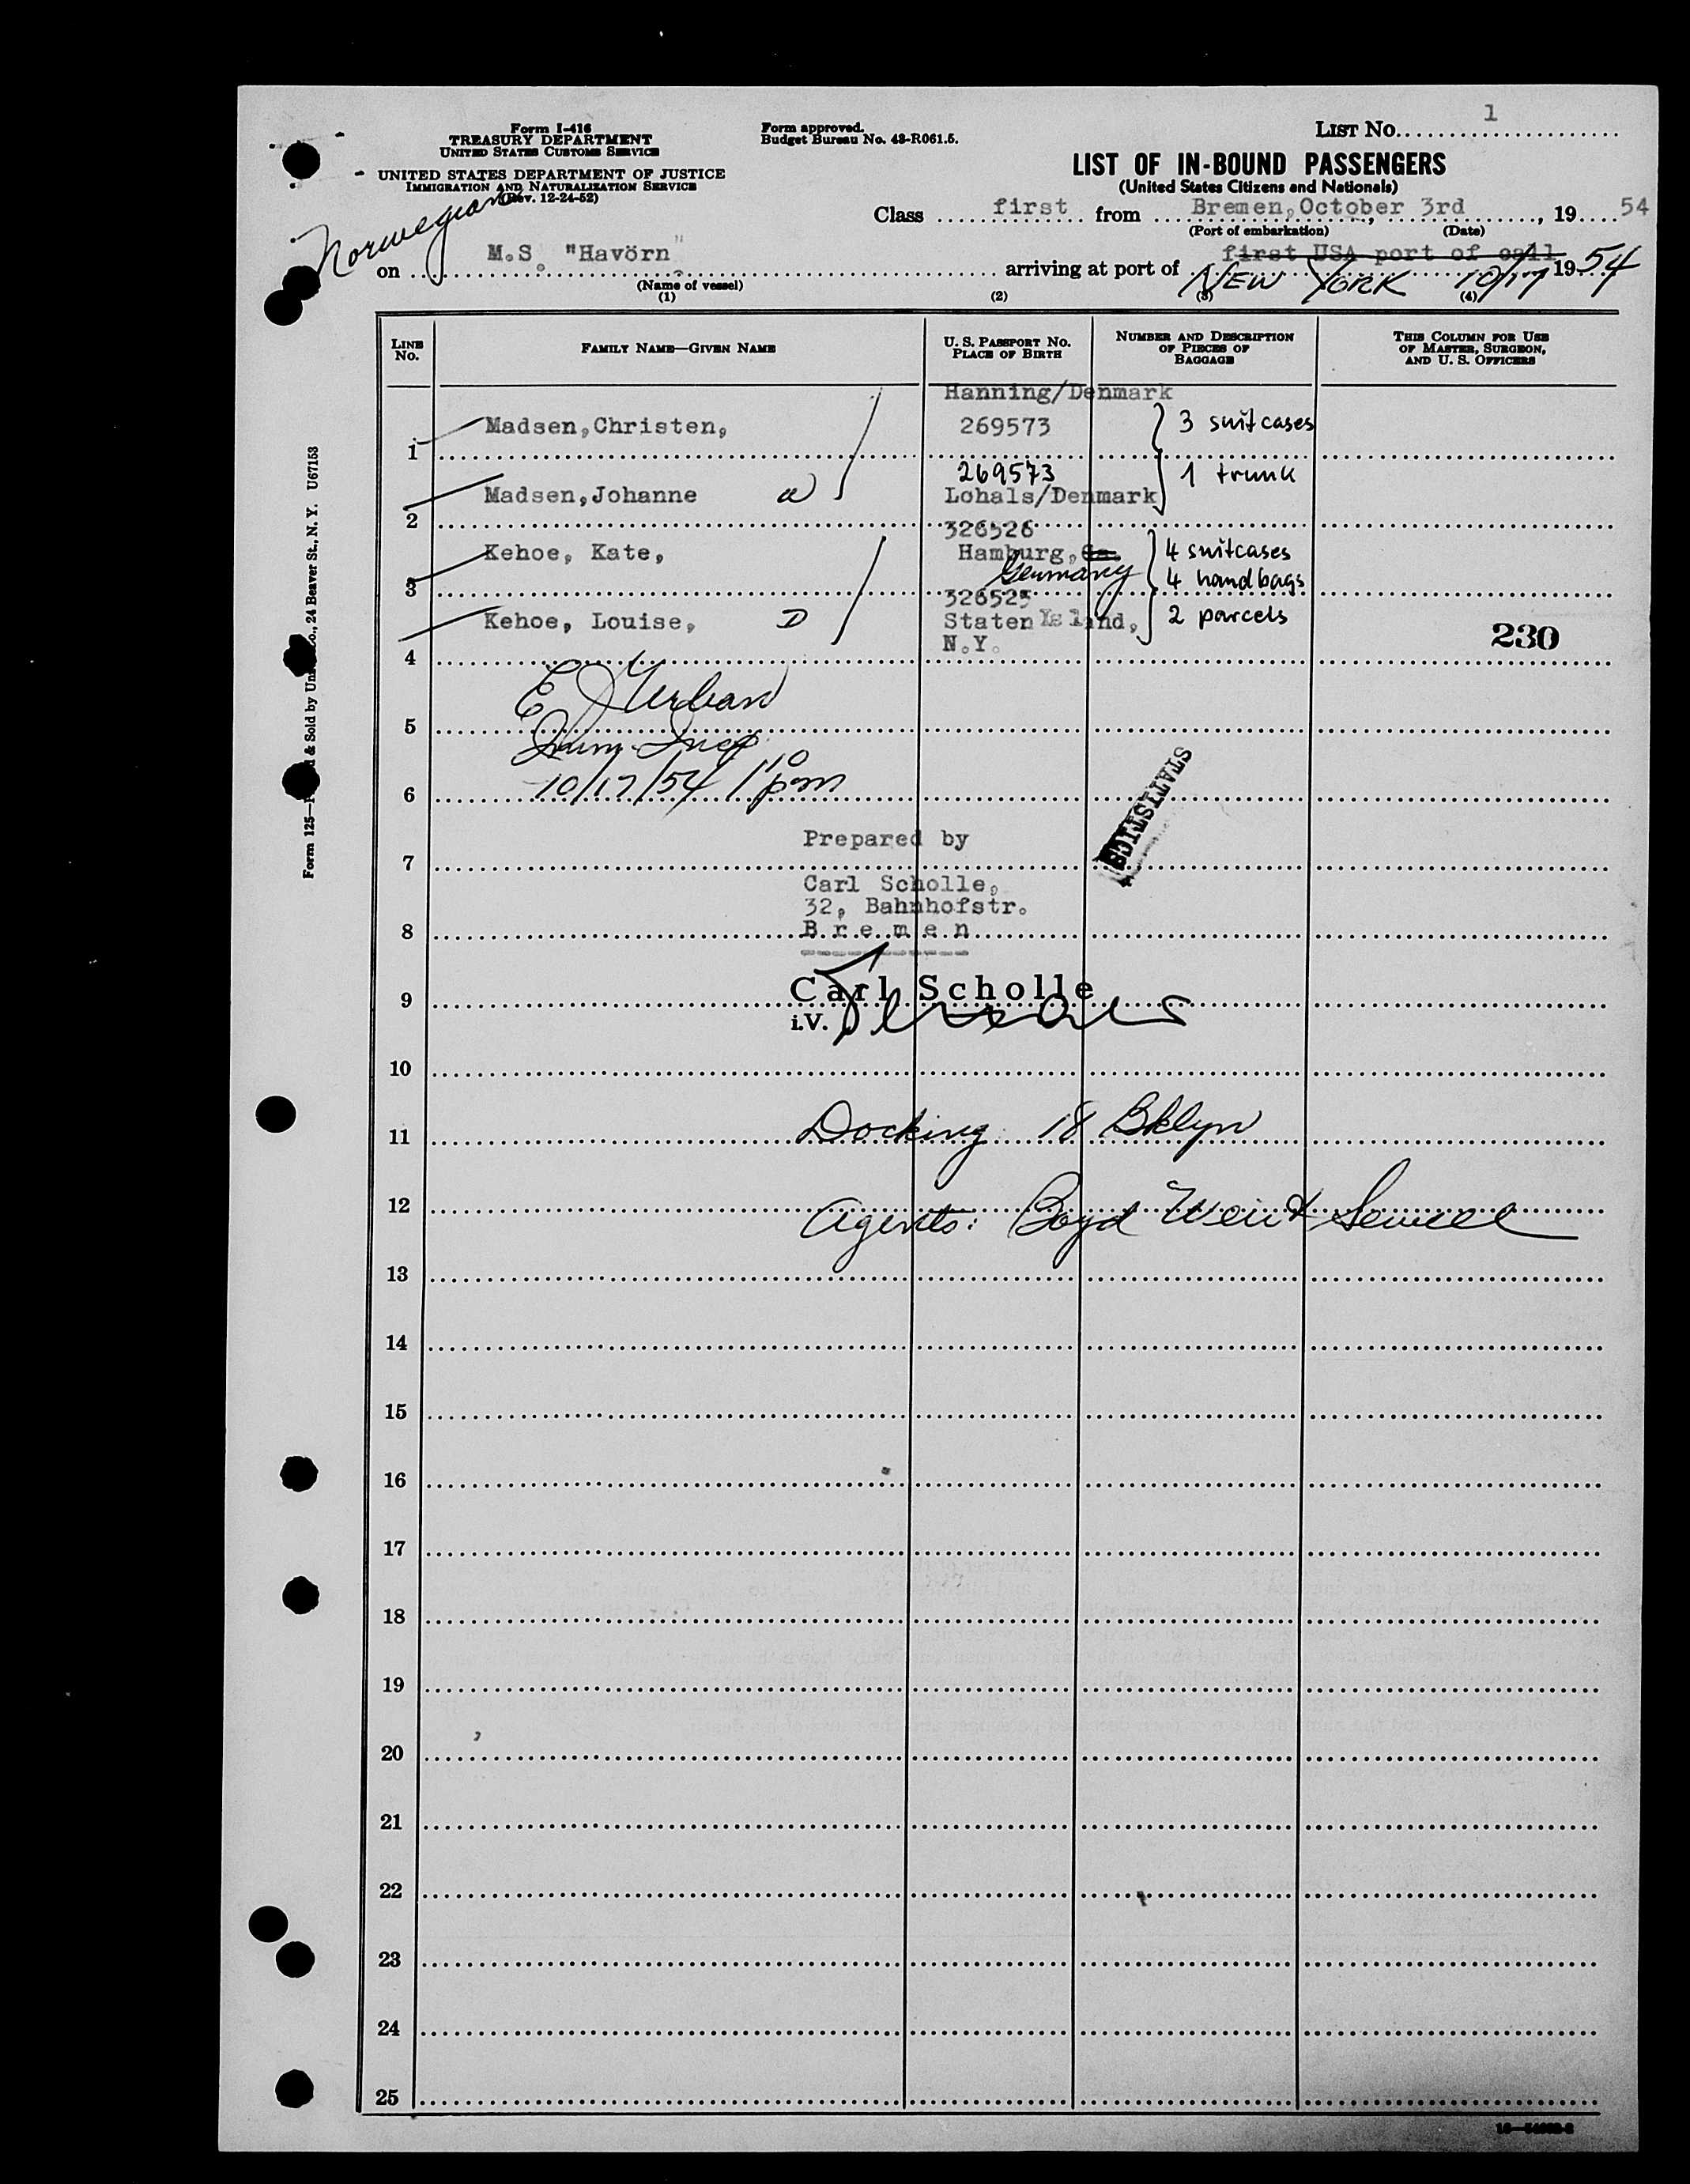 1
Form I-416
TREASURY DEPARTMENT
UNITED STATES CUSTOMS SERVICE
Form approved.
Budget Bureau No. 43-R061.5.
LIST No.
UNITED STATES DEPARTMENT OF JUSTICE
IMMIGRATION AND NATURALIZATION SERVICE
(Rev. 12-24-52)
LIST OF IN-BOUND PASSENGERS
(United States Citizens and Nationals)
Norwegian
Class first from Bremen, October 3rd, 19 54
(Port of embarkation) (Date)
on M.S. "Havörn" arriving at port of first USA port of call 19 54
NEW YORK 10/17
(Name of vessel)
(1) (2) (3) (4)
LINE No. FAMILY NAME—GIVEN NAME U. S. PASSPORT No. PLACE OF BIRTH NUMBER AND DESCRIPTION OF PIECES OF BAGGAGE THIS COLUMN FOR USE OF MASTER, SURGEON, AND U. S. OFFICERS
Hanning/Denmark
1 Madsen, Christen, 269573 3 suitcases
269573 1 trunk
2 Madsen, Johanne W Lohals/Denmark
326526
3 Kehoe, Kate, Hamburg, Ga. 4 suitcases
Germany 4 handbags
326525
4 Kehoe, Louise, D Staten Island, 2 parcels
N.Y.
230
5 E J Urban
Imm. Insp
6 10/17/54 1 10 pm
STATISTICS
Prepared by
7
Carl Scholle,
32, Bahnhofstr.
8 Bremen
Carl Scholle
9
i.V.
10
11 Docking 18 Bklyn
12 Agents: Boyd Weir & Sewell
13
14
15
16
17
18
19
20
21
22
23
24
25